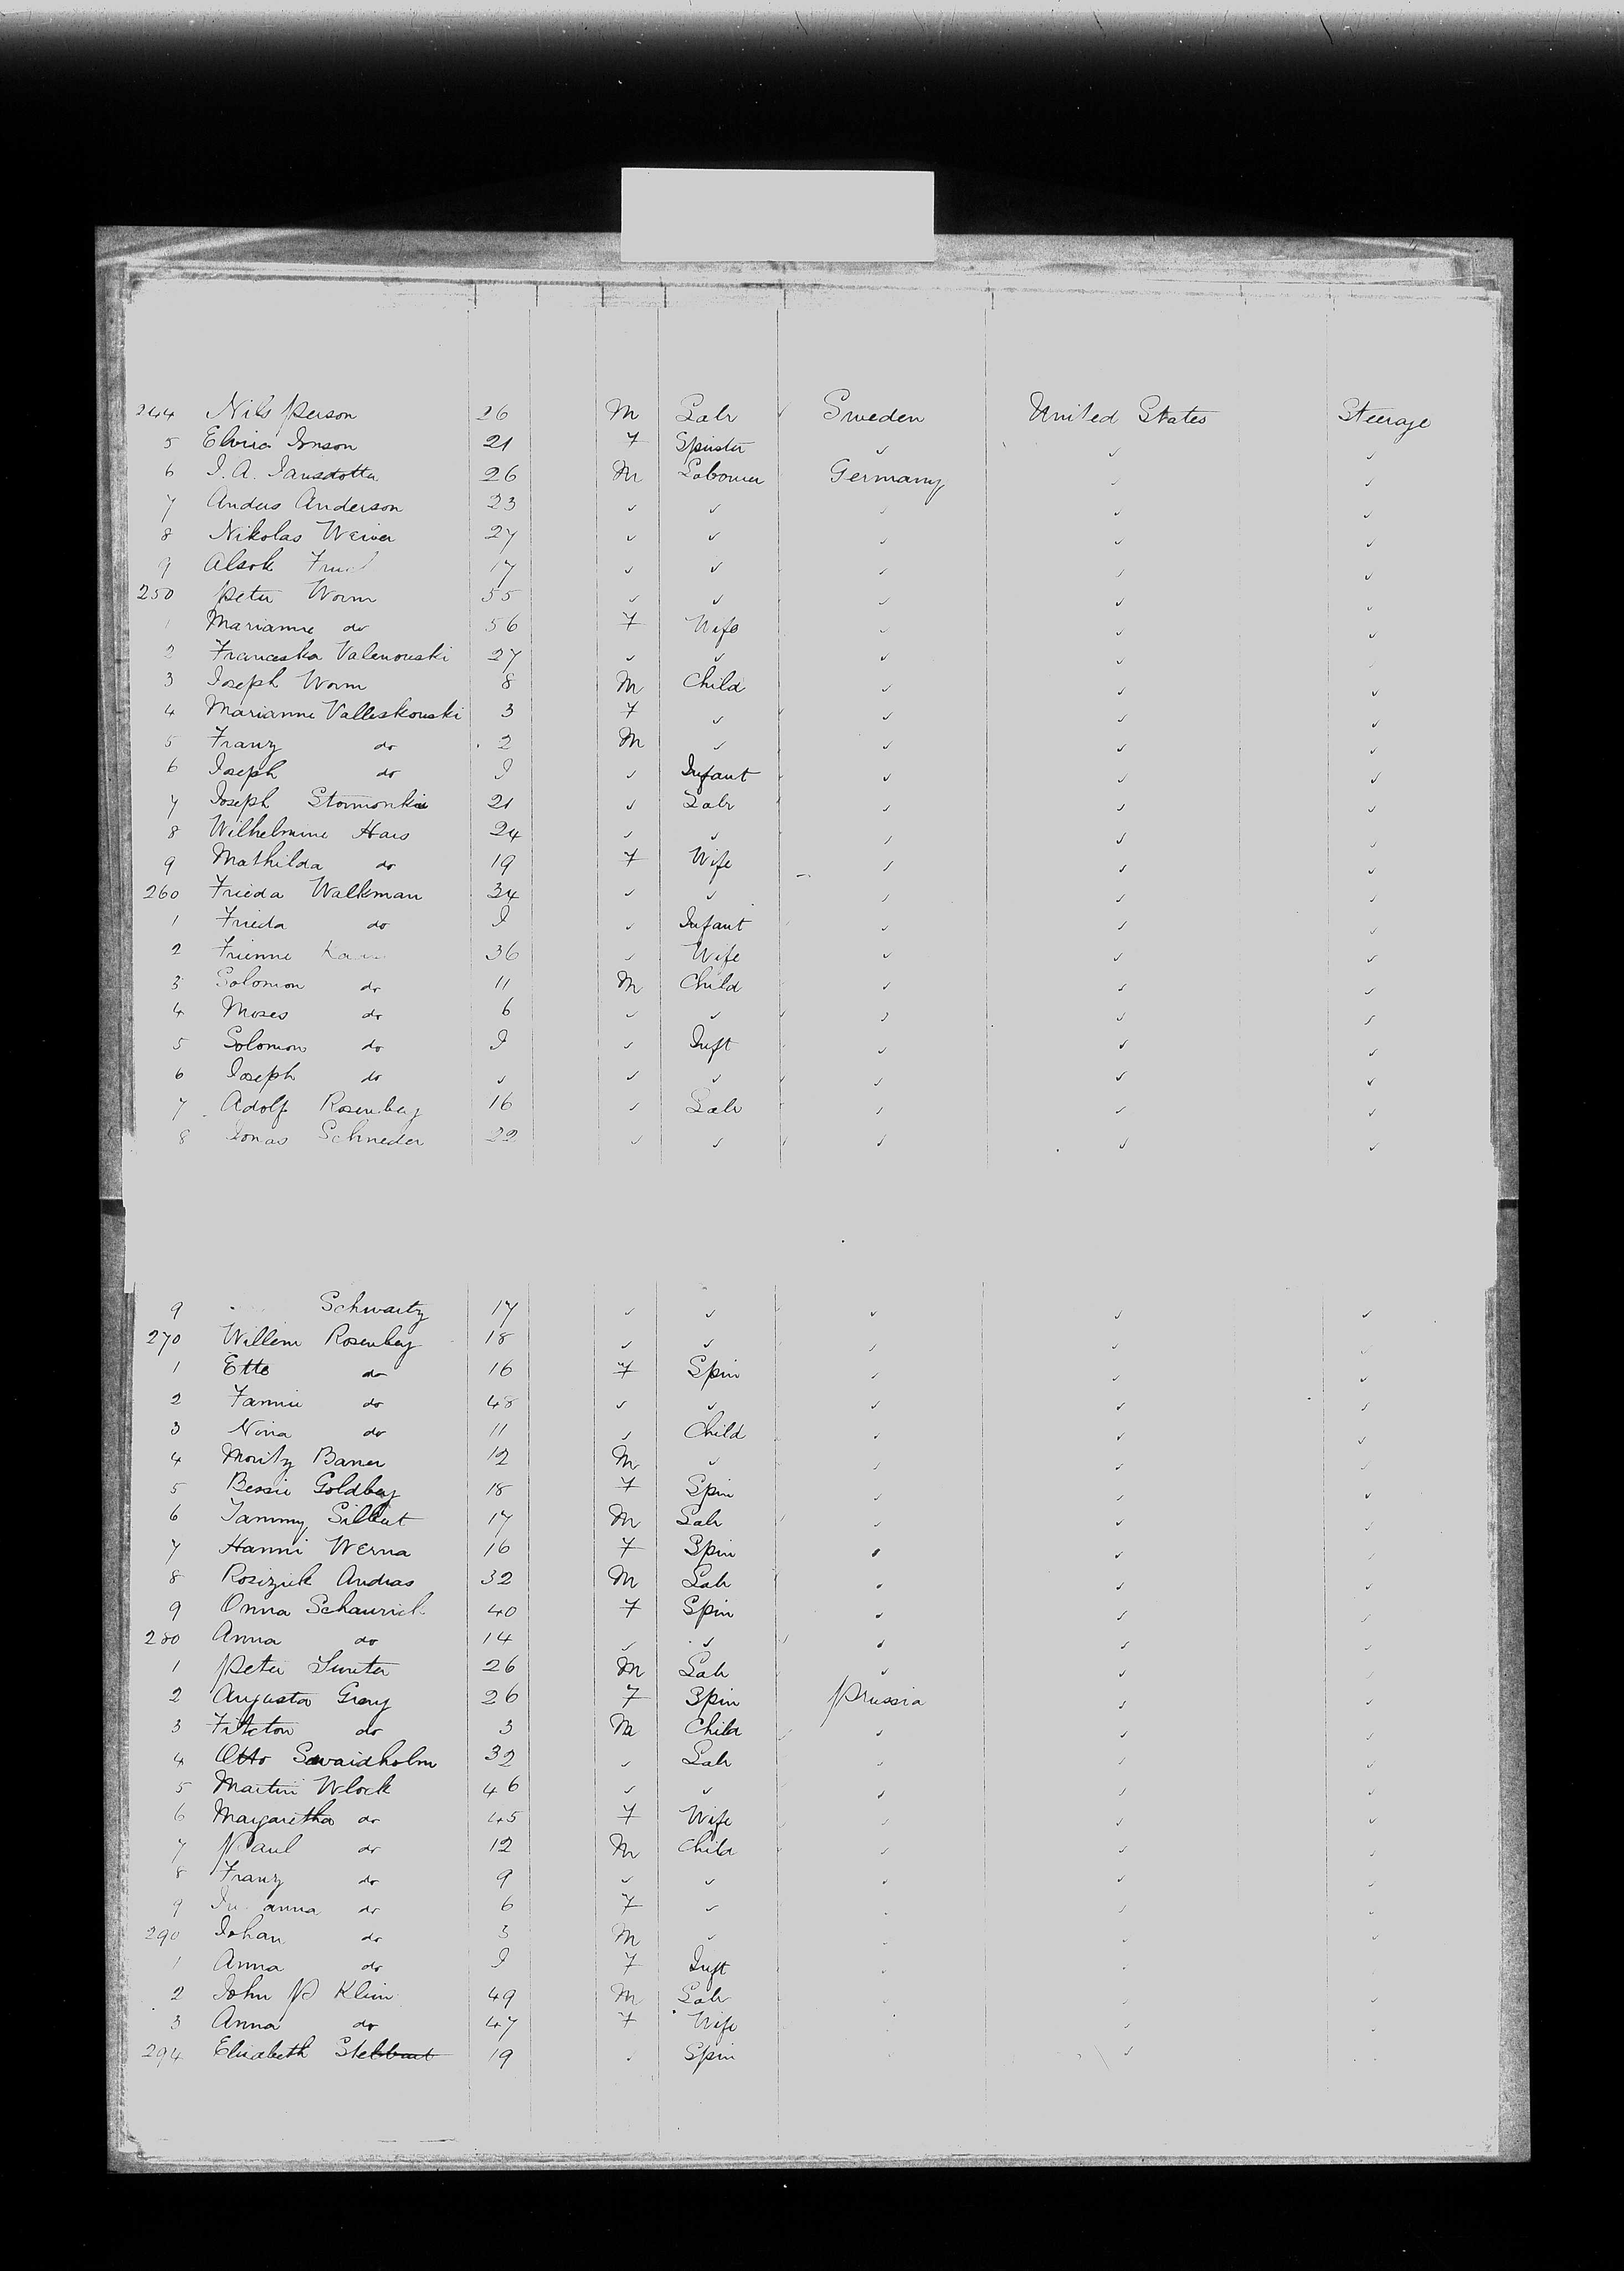 244 Nils Person 26 M Labr ✓ Sweden United States Steerage
5 Elvira Jonson 21 F Spinster ✓ ✓ ✓
6 J. A. Jansdotter 26 M Labourer Germany ✓ ✓
7 Anders Anderson 23 ✓ ✓ ✓ ✓ ✓
8 Nikolas Weiner 27 ✓ ✓ ✓ ✓ ✓
9 Alsok 17 ✓ ✓ ✓ ✓ ✓
250 Peter Worm 55 ✓ ✓ ✓ ✓ ✓
1 Marianne do 56 F Wife ✓ ✓ ✓
2 Franceska Valenouski 27 ✓ ✓ ✓ ✓
3 Joseph Worm 8 M Child ✓ ✓ ✓
4 Marianne Valleskouski 3 F ✓ ✓ ✓ ✓
5 Franz do 2 M ✓ ✓ ✓ ✓
6 Joseph do I ✓ Infant ✓ ✓ ✓
7 Joseph 21 ✓ Labr ✓ ✓ ✓
8 Wilhelmine Hars 24 ✓ ✓ ✓ ✓ ✓
9 Mathilda do 19 F Wife ✓ ✓ ✓
260 Frieda Walkman 34 ✓ ✓ ✓ ✓ ✓
1 Frieda do I ✓ Infant ✓ ✓ ✓
2 Frienne 36 ✓ Wife ✓ ✓ ✓
3 Solomon do 11 M Child ✓ ✓ ✓
4 Moses do 6 ✓ ✓ ✓ ✓ ✓
5 Solomon do I ✓ Inft ✓ ✓ ✓
6 Joseph do ✓ ✓ ✓ ✓ ✓ ✓
7 Adolf Rosenberg 16 ✓ Labr ✓ ✓ ✓
8 Jonas Schneder 22 ✓ ✓ ✓ ✓ ✓
9 Schwartz 17 ✓ ✓ ✓ ✓ ✓
270 Willem Rosenberg 18 ✓ ✓ ✓ ✓ ✓
1 Etta do 16 F Spin ✓ ✓ ✓
2 Fannie do 48 ✓ ✓ ✓ ✓ ✓
3 Nina do 11 ✓ Child ✓ ✓ ✓
4 Moritz Baner 12 M ✓ ✓ ✓ ✓
5 Bessie Goldberg 18 F Spin ✓ ✓ ✓
6 Tammy 17 M Labr ✓ ✓ ✓
7 Hanni Werna 16 F Spin ✓ ✓ ✓
8 Andras 32 M Labr ✓ ✓ ✓
9 Onna Schaurick 40 F Spin ✓ ✓ ✓
280 Anna do 14 ✓ ✓ ✓ ✓ ✓
1 Peter 26 M Labr ✓ ✓ ✓
2 Augusta Gray 26 F Spin Prussia ✓ ✓
3 do 3 M Child ✓ ✓ ✓
4 Otto Swaidholm 32 ✓ Labr ✓ ✓ ✓
5 Martin Wlock 46 ✓ ✓ ✓ ✓ ✓
6 Margaretha do 45 F Wife ✓ ✓ ✓
7 Paul do 12 M Child ✓ ✓ ✓
8 Franz do 9 ✓ ✓ ✓ ✓ ✓
9 anna do 6 F ✓ ✓ ✓
290 Johan do 3 M ✓ ✓ ✓
1 Anna do I F Inft
2 John P Klein 49 M Labr ✓ ✓
3 Anna do 47 F Wife ✓ ✓
294 Elizabeth 19 ✓ Spin ✓